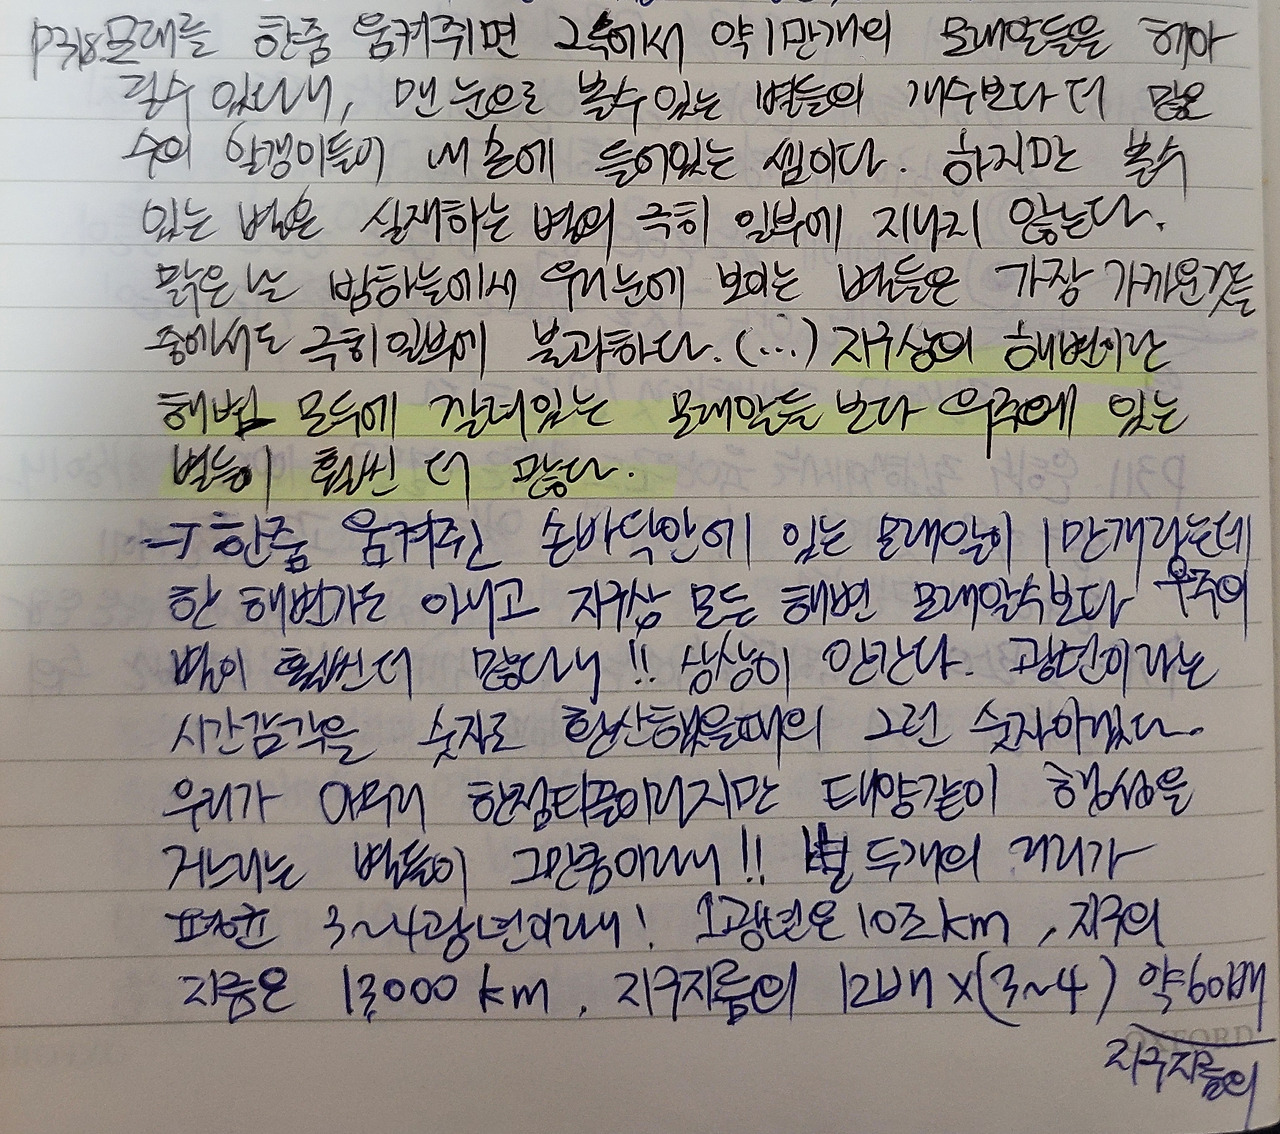 P318. 모래를 한줌 움켜쥐면 그속에서 약 1만개의 모래알들을 헤아
릴수 있다니, 맨눈으로 볼수있는 별들의 개수보다 더 많은
수의 알갱이들이 내 손에 들어있는 셈이다. 하지만 볼수
있는 별은 실재하는 별의 극히 일부에 지나지 않는다.
맑은날 밤하늘에서 우리눈에 보이는 별들은 가장 가까운것들
중에서도 극히일부에 불과하다. (...) 지구상의 해변이란
해변 모두에 깔려있는 모래알들 보다 우주에 있는
별들이 훨씬 더 많다.
→ 한줌 움켜쥔 손바닥안에 있는 모래알이 1만개라는데
한 해변가는 아니고 지구상 모든 해변 모래알수보다 우주의
별이 훨씬더 많다니!! 상상이 안간다. 광년이라는
시간감각을 숫자로 환산했을때의 그런 숫자이겠다.
우리가 아무리 한점티끌이라지만 태양같이 행성을
거느리는 별들이 그만큼이라니!! 별 두개의 거리가
평균 3~4광년이라니! 1광년은 10조km, 지구의
지름은 13,000 km, 지구지름의 12배 x(3~4) 약60배
OXFORD
지구지름의